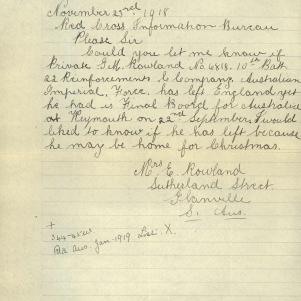 November 23rd 1918
Red Cross Information Bureau
Please Sir
Could you let me know if
Private G.M. Rowland No 6818. 10th Batt
22 Reinforcements C Company Australian
Imperial Force. has left England yet
he had is Final Board for Australia
at Weymouth on 22nd September. I would
liked to know if he has left because
he may be home for Christmas.
Mrs E. Rowland
Sutherland Street.
Glanville
S. Aus.
Aus. Jan. 1919. List. X.